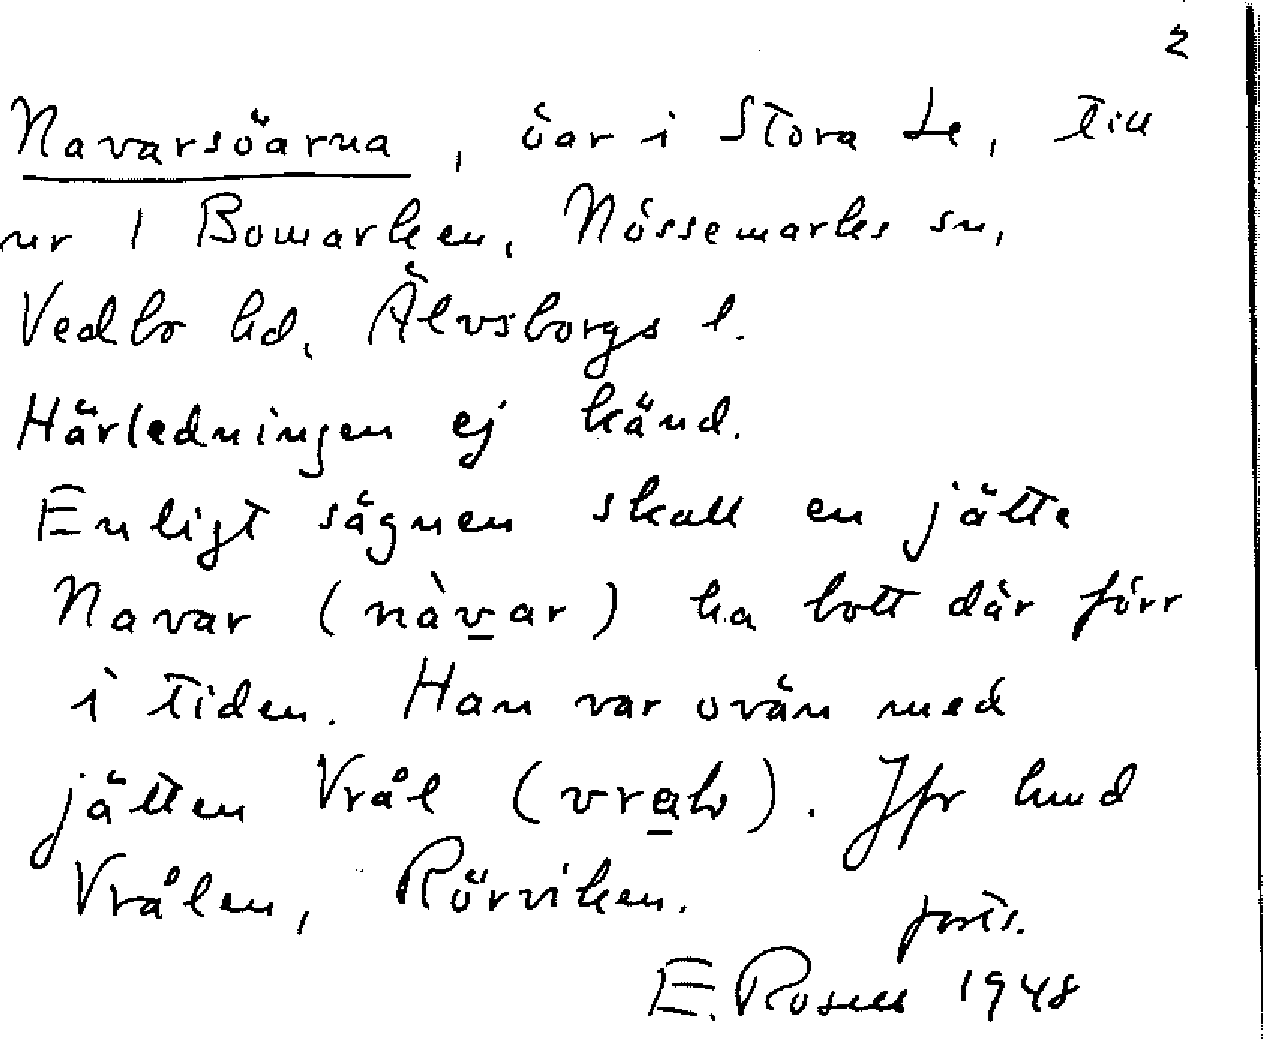 2
Navarsöarna, öar i Stora Le, till
nr 1 Bomarken, Nössemarks sn,
Vedbo hd, Älvsborgs l.
Härledningen ej känd.
Enligt sägnen skall en jätte
Navar (nàvar) ha bott där förr
i tiden. Han var ovän med
jätten Vrål (vralv). Jfr hmd
Vrålen, Rörviken.
forts.
E. Rosell 1948